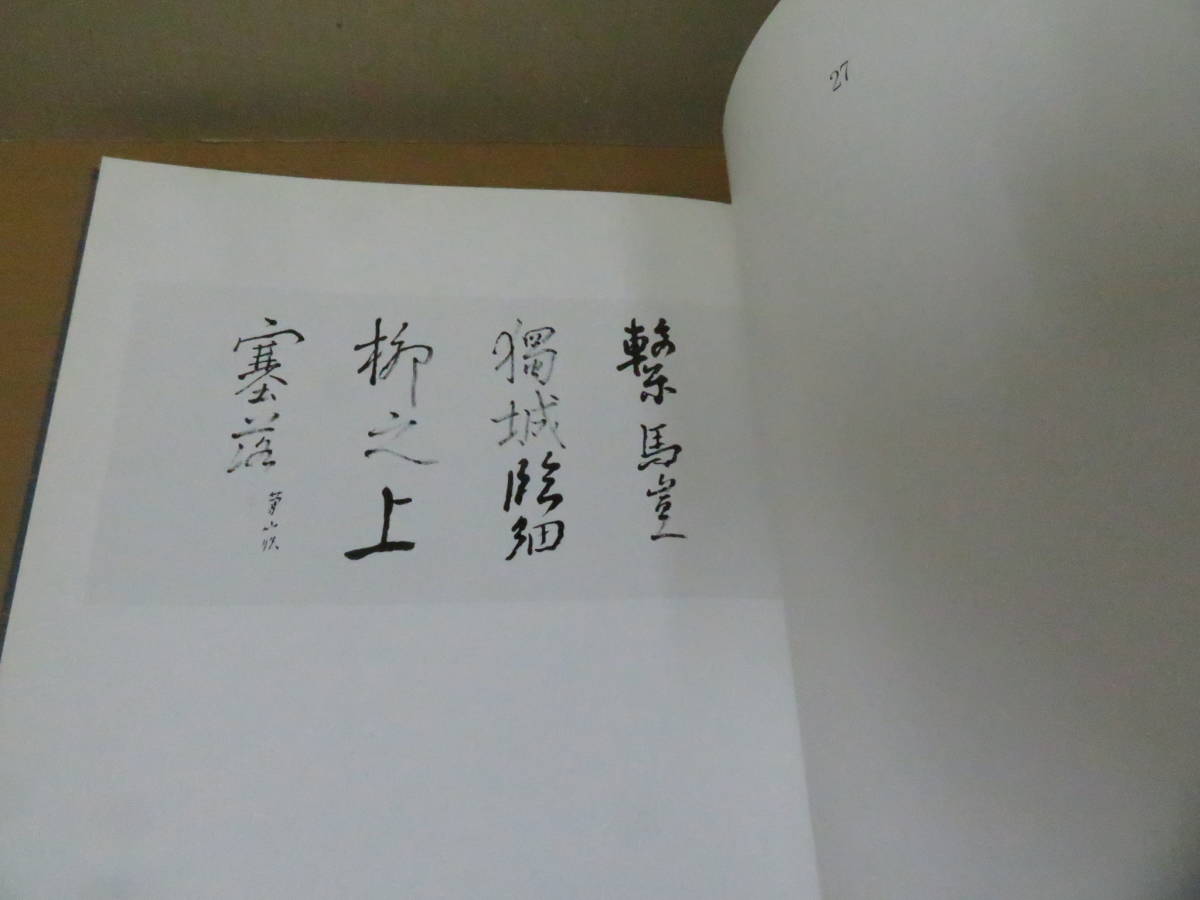 27
繋馬豈
獨城臨細
柳之上
塞落